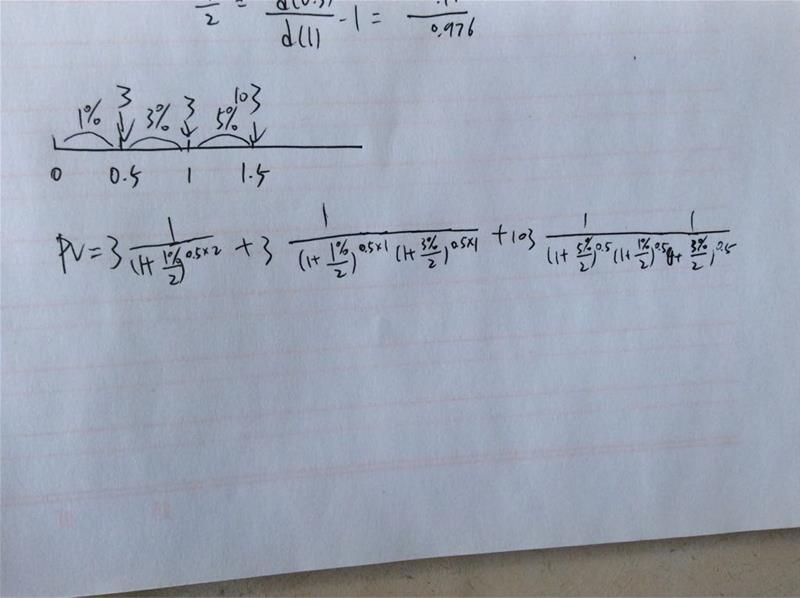 1/2 = d(0.5)/d(1) - 1 = /0.976
1% 3 3% 3 5% 103
0 0.5 1 1.5
PV = 3 1/(1+1%/2)^0.5×2 + 3 1/(1+1%/2)^0.5×1 (1+3%/2)^0.5×1 + 103 1 1/(1+5%/2)^0.5 (1+1%/2)^0.5 (1+3%/2)^0.5